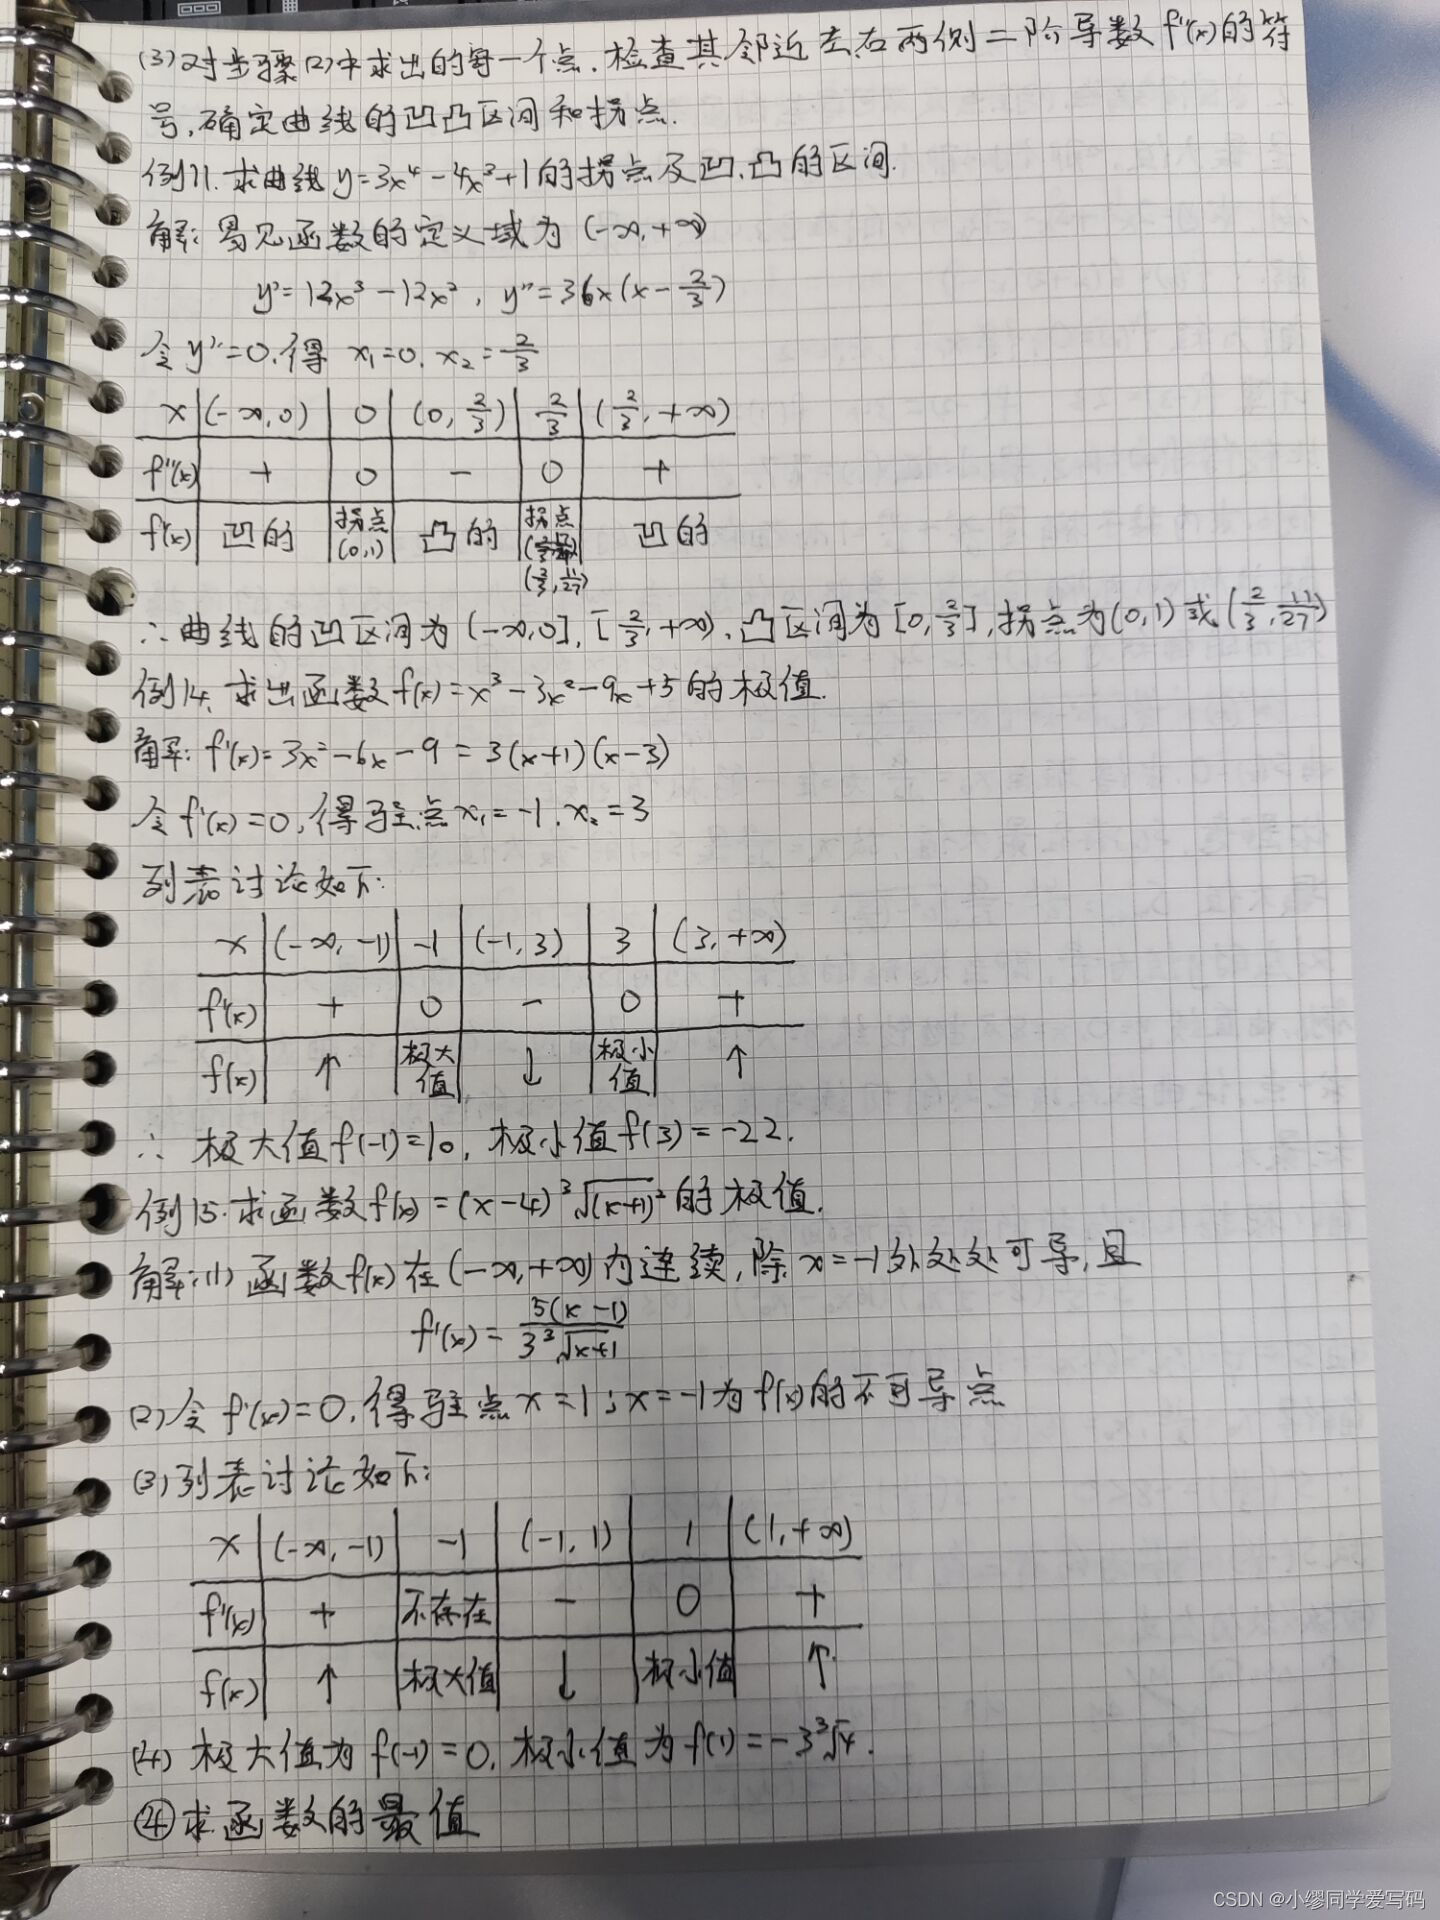 (3)对步骤(2)中求出的每一个点,检查其邻近左右两侧二阶导数f''(x)的符
号,确定曲线的凹凸区间和拐点.
例11.求曲线y=3x⁴-4x³+1的拐点及凹、凸的区间.
解:易见函数的定义域为(-∞,+∞)
y'=12x³-12x², y''=36x(x-2/3)
令y''=0,得 x₁=0, x₂=2/3
x (-∞,0) 0 (0,2/3) 2/3 (2/3,+∞)
f''(x) + 0 - 0 +
f(x) 凹的 拐点(0,1) 凸的 拐点(2/3,11/27) 凹的
∴曲线的凹区间为(-∞,0],[2/3,+∞),凸区间为[0,2/3],拐点为(0,1)或(2/3,11/27)
例14.求出函数f(x)=x³-3x²-9x+5的极值.
解:f'(x)=3x²-6x-9=3(x+1)(x-3)
令f'(x)=0,得驻点x₁=-1,x₂=3
列表讨论如下:
x (-∞,-1) -1 (-1,3) 3 (3,+∞)
f'(x) + 0 - 0 +
f(x) ↑ 极大值 ↓ 极小值 ↑
∴ 极大值f(-1)=10,极小值f(3)=-22.
例15.求函数f(x)=(x-4)³√(x+1)²的极值.
解:(1)函数f(x)在(-∞,+∞)内连续,除x=-1外处处可导,且
f'(x)=5(x-1)/3³√x+1
(2)令f'(x)=0,得驻点x=1;x=-1为f(x)的不可导点
(3)列表讨论如下:
x (-∞,-1) -1 (-1,1) 1 (1,+∞)
f'(x) + 不存在 - 0 +
f(x) ↑ 极大值 ↓ 极小值 ↑
(4)极大值为f(-1)=0,极小值为f(1)=-3³√4.
④求函数的最值
CSDN @小缪同学爱写码